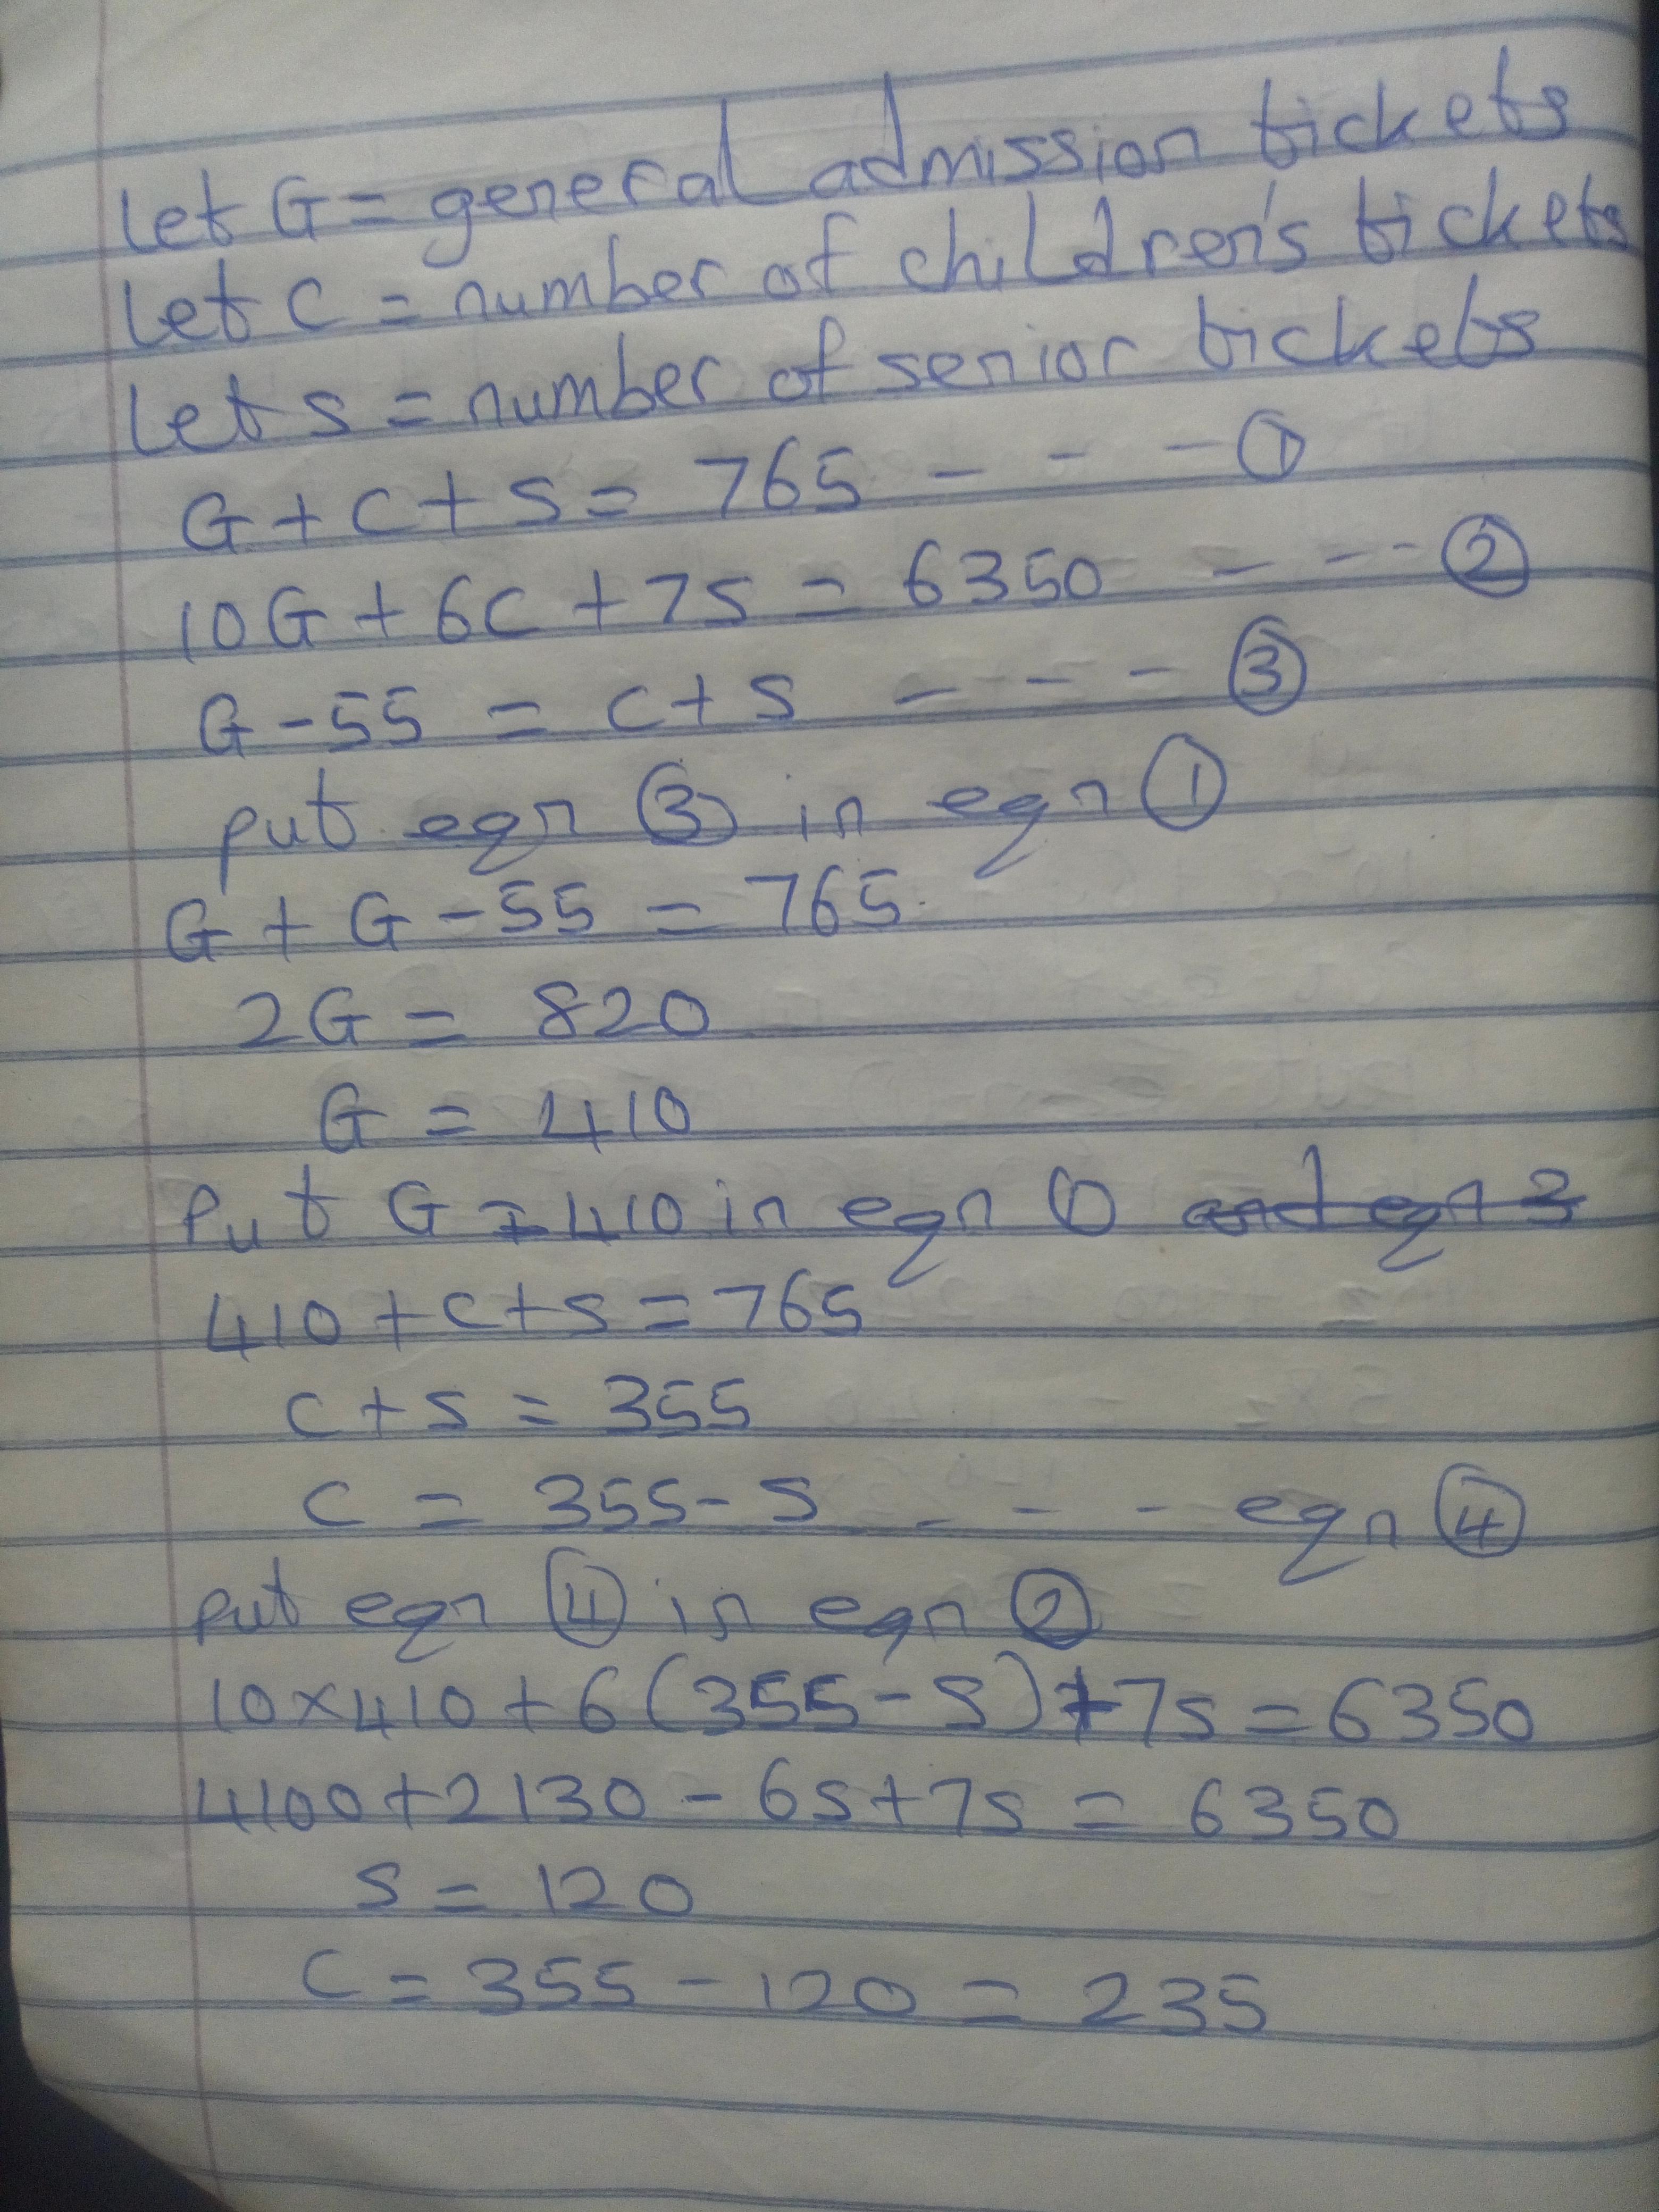 Let G = general admission tickets
Let C = number of children's tickets
Let S = number of senior tickets
G + C + S = 765 - - - ①
10G + 6C + 7S = 6350 - - - ②
G - 55 = C + S - - - ③
put eqn ③ in eqn ①
G + G - 55 = 765
2G = 820
G = 410
Put G = 410 in eqn ① and eqn 3
410 + C + S = 765
C + S = 355
C = 355 - S - - - eqn ④
put eqn ④ in eqn ②
10 × 410 + 6(355 - S) + 7S = 6350
4100 + 2130 - 6S + 7S = 6350
S = 120
C = 355 - 120 = 235